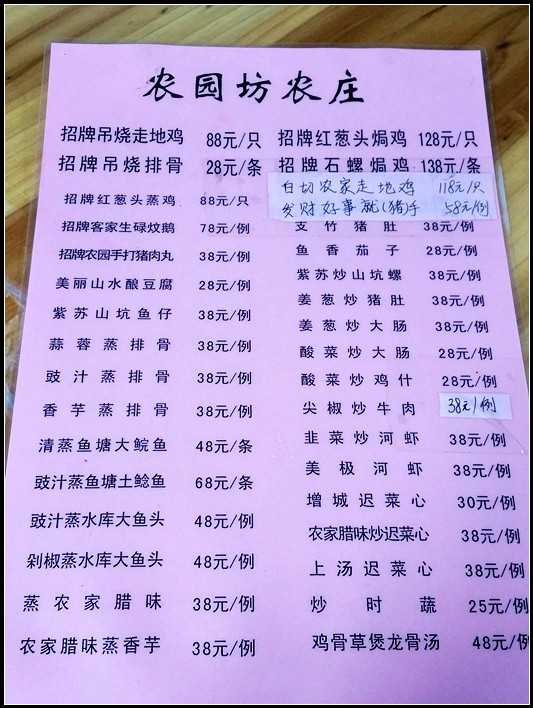 农园坊农庄
招牌吊烧走地鸡 88元/只
招牌吊烧排骨 28元/条
招牌红葱头蒸鸡 88元/只
招牌客家生碌炆鹅 78元/例
招牌农园手打猪肉丸 38元/例
美丽山水酿豆腐 28元/例
紫苏山坑鱼仔 38元/例
蒜蓉蒸排骨 38元/例
豉汁蒸排骨 38元/例
香芋蒸排骨 38元/例
清蒸鱼塘大鲩鱼 48元/条
豉汁蒸鱼塘土鲶鱼 68元/条
豉汁蒸水库大鱼头 48元/例
剁椒蒸水库大鱼头 48元/例
蒸农家腊味 38元/例
农家腊味蒸香芋 38元/例
招牌红葱头焗鸡 128元/只
招牌石螺焗鸡 138元/条
白切农家走地鸡 118元/只
发财好事就(猪)手 58元/例
支竹猪肚 38元/例
鱼香茄子 28元/例
紫苏炒山坑螺 38元/例
姜葱炒猪肚 38元/例
姜葱炒大肠 38元/例
酸菜炒大肠 28元/例
酸菜炒鸡什 28元/例
尖椒炒牛肉 38元/例
韭菜炒河虾 38元/例
美极河虾 38元/例
增城迟菜心 30元/例
农家腊味炒迟菜心 38元/例
上汤迟菜心 38元/例
炒时蔬 25元/例
鸡骨草煲龙骨汤 48元/例